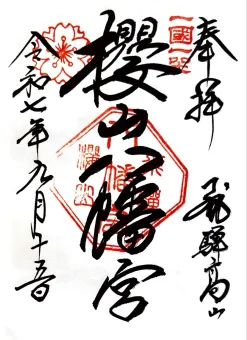 奉拝
飛騨高山
一國一社
櫻山八幡宮
令和七年九月十五日